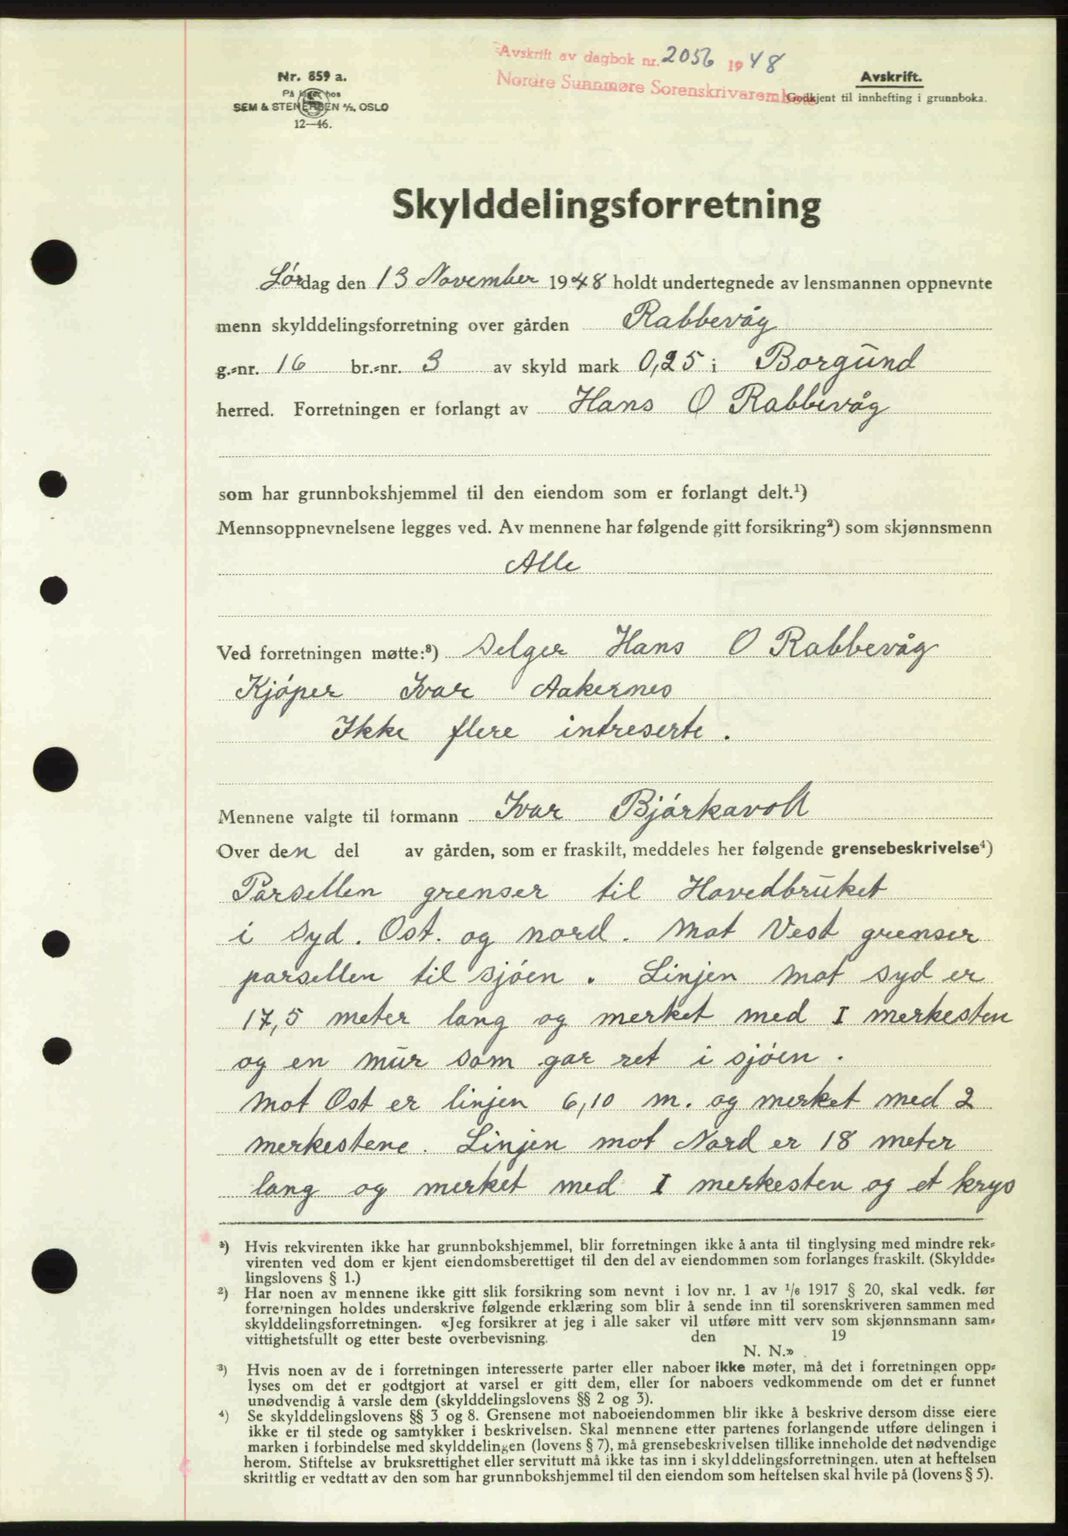 Avskrift av dagbok nr. 2056 1948
Nordre Sunnmøre Sorenskriverembete
Nr. 859 a.
På lager hos
SEM & STENERSEN A/S, OSLO
12—46.
Avskrift.
Godkjent til innhefting i grunnboka.
Skylddelingsforretning
Lørdag den 13 November 1948 holdt undertegnede av lensmannen oppnevnte
menn skylddelingsforretning over gården Rabbevåg
g.-nr. 16 br.-nr. 3 av skyld mark 0,25 i Borgund
herred. Forretningen er forlangt av Hans O Rabbevåg
som har grunnbokshjemmel til den eiendom som er forlangt delt.¹)
Mennsoppnevnelsene legges ved. Av mennene har følgende gitt forsikring²) som skjønnsmenn
Alle
Ved forretningen møtte:³) Selger Hans O Rabbevåg
Kjøper Ivar Aakernes
Ikke flere intreserte.
Mennene valgte til formann Ivar Bjørkavoll
Over den del av gården, som er fraskilt, meddeles her følgende grensebeskrivelse⁴)
Parsellen grenser til Hovedbruket
i Syd. Ost. og nord. Mot Vest grenser
parsellen til sjøen. Linjen mot syd er
17,5 meter lang og merket med I merkesten
og en mur som gar ret i sjøen.
Mot Øst er linjen 6,10 m. og merket med 2
merkestene. Linjen mot Nord er 18 meter
lang og merket med I merkesten og et krys
¹) Hvis rekvirenten ikke har grunnbokshjemmel, blir forretningen ikke å anta til tinglysing med mindre rek-
virenten ved dom er kjent eiendomsberettiget til den del av eiendommen som forlanges fraskilt. (Skyldde-
lingslovens § 1.)
²) Har noen av mennene ikke gitt slik forsikring som nevnt i lov nr. 1 av ¹/₆ 1917 § 20, skal vedk. før
forretningen holdes underskrive følgende erklæring som blir å sende inn til sorenskriveren sammen med
skylddelingsforretningen. «Jeg forsikrer at jeg i alle saker vil utføre mitt verv som skjønnsmann sam-
vittighetsfullt og etter beste overbevisning. den 19
N. N.»
³) Hvis noen av de i forretningen interesserte parter eller naboer ikke møter, må det i forretningen opp-
lyses om det er godtgjort at varsel er gitt dem, eller for naboers vedkommende om det er funnet
unødvendig å varsle dem (skylddelingslovens §§ 2 og 3).
⁴) Se skylddelingslovens §§ 3 og 8. Grensene mot naboeiendommen blir ikke å beskrive dersom disse eiere
ikke er til stede og samtykker i beskrivelsen. Skal mennene etter partenes forlangende utføre delingen i
marken i forbindelse med skylddelingen (lovens § 7), må grensebeskrivelsen tillike inneholde det nødvendige
herom. Stiftelse av bruksrettighet eller servitutt må ikke tas inn i skylddelingsforretningen, uten at heftelsen
skriftlig er vedtatt av den som har grunnbokshjemmel til den eiendom som heftelsen skal hvile på (lovens § 5).